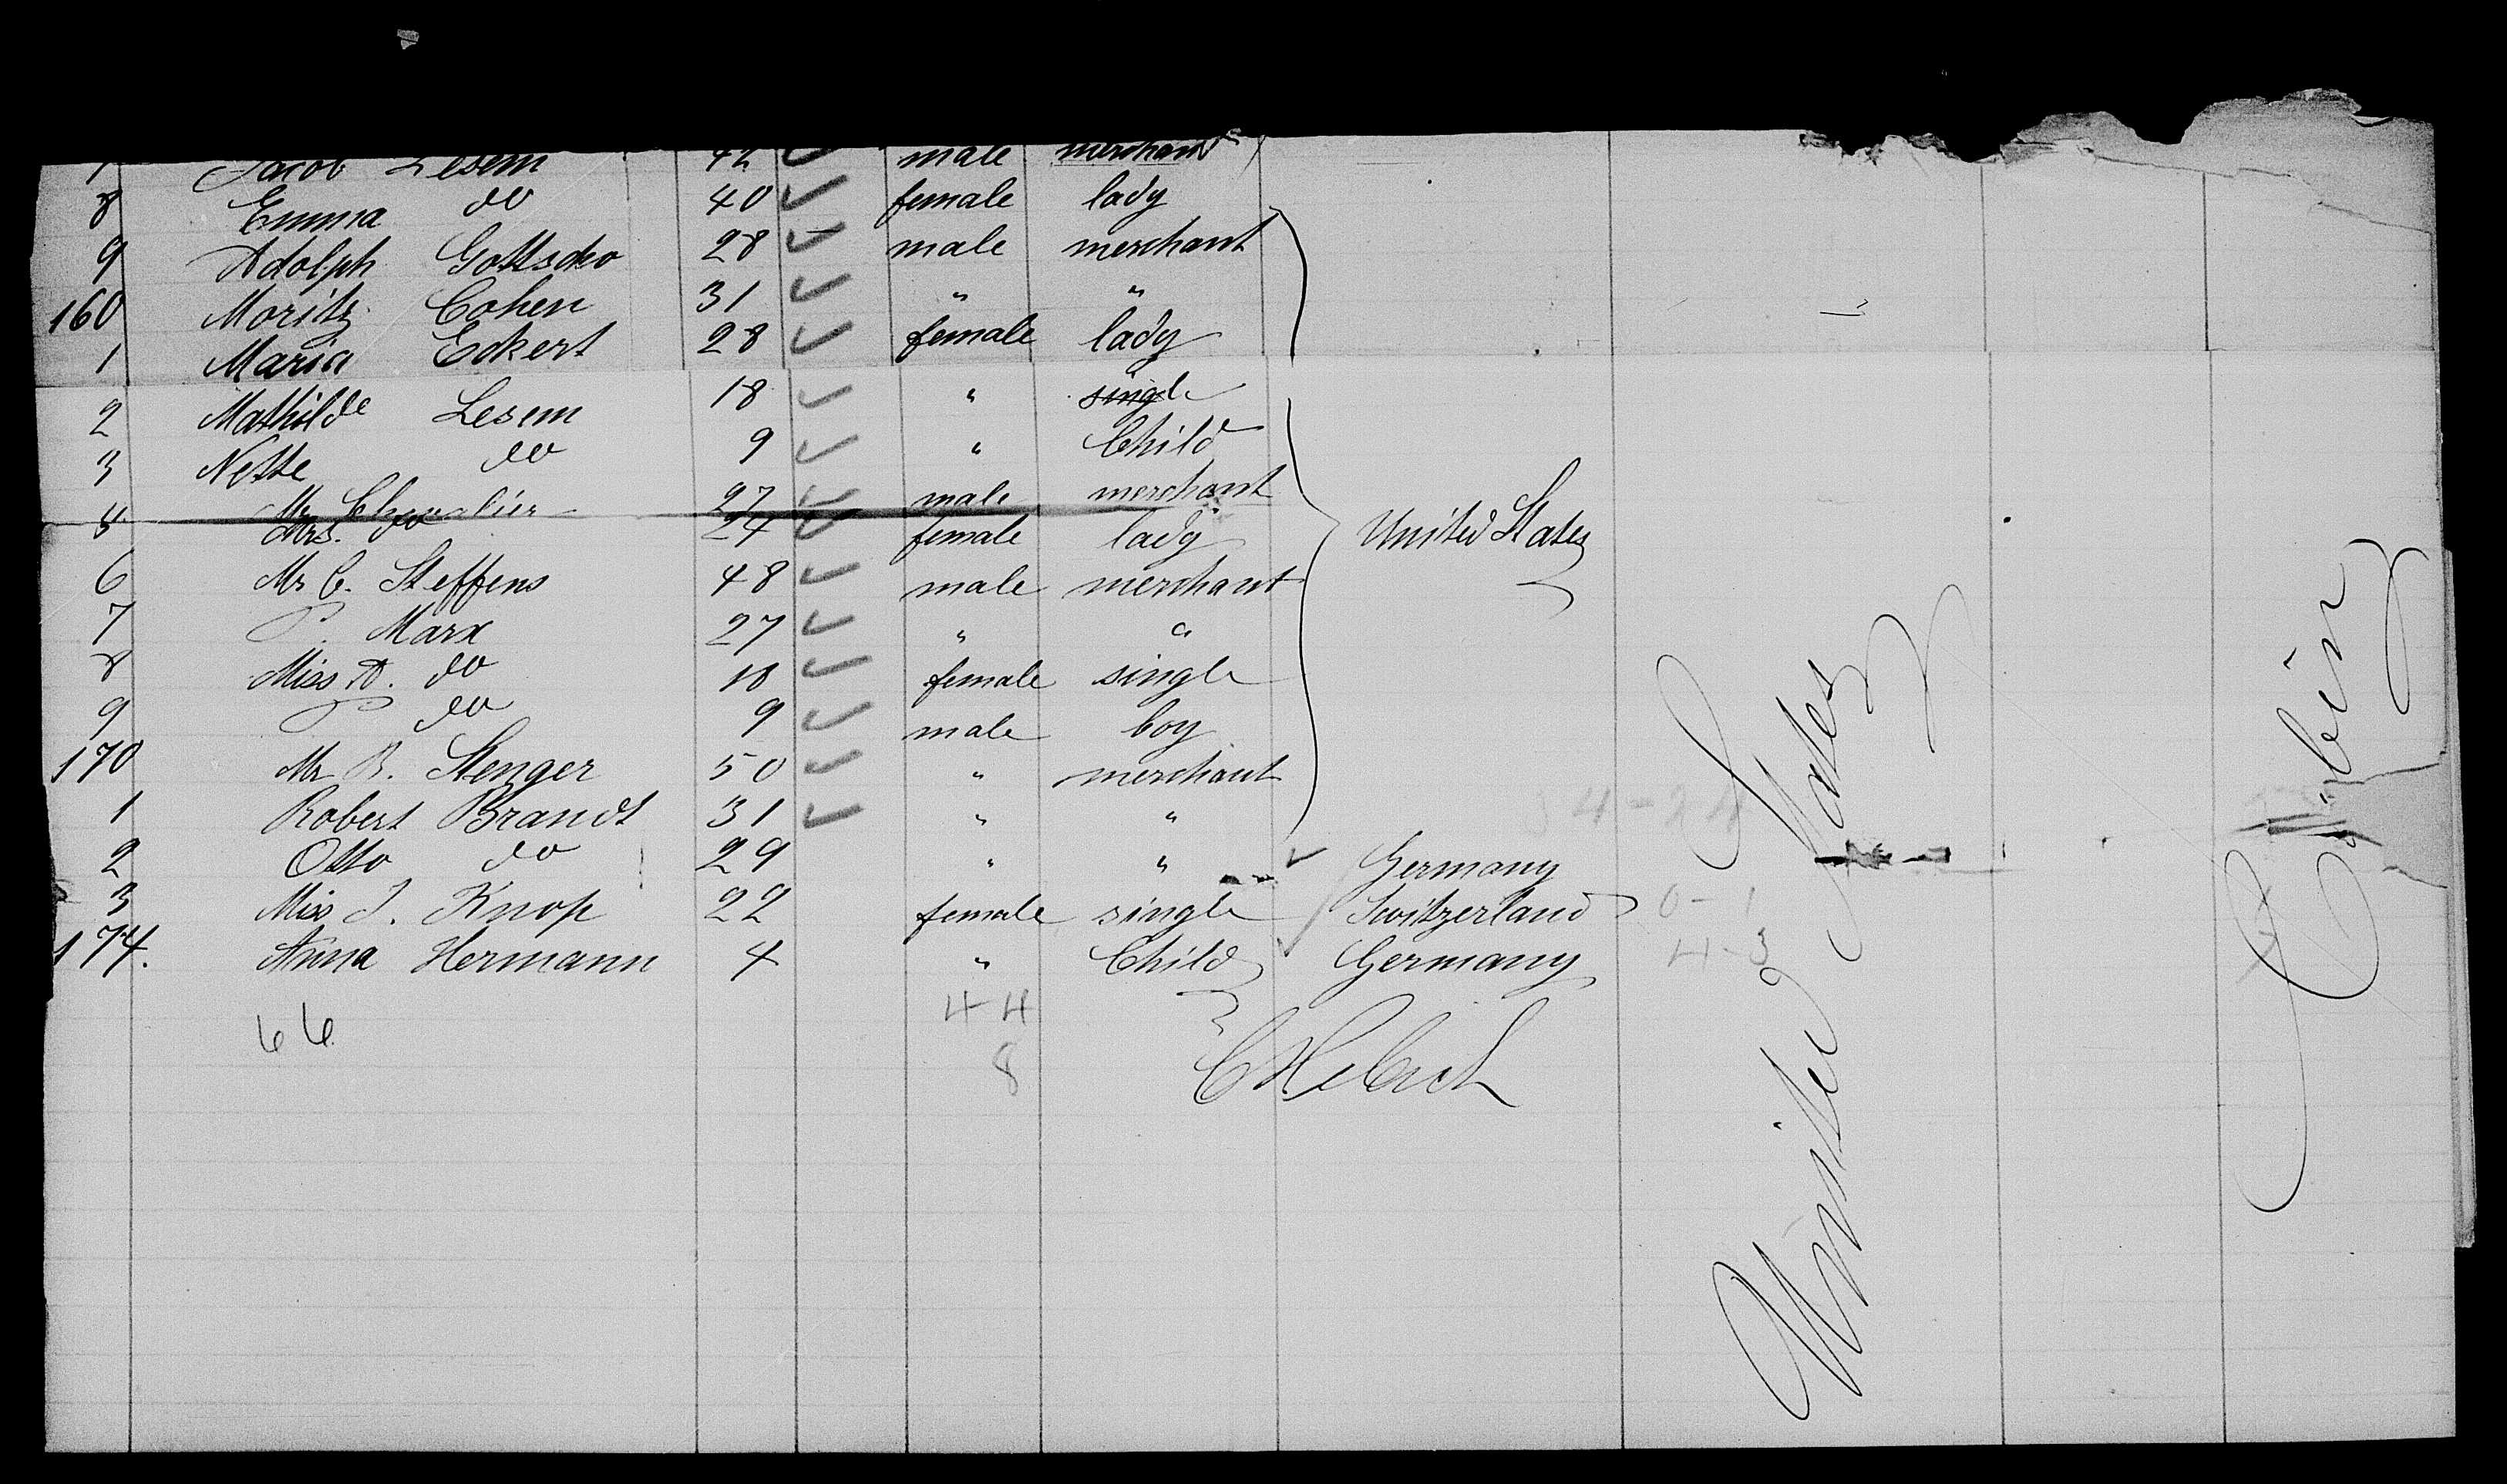 Jacob Lesem 42 male merchant
8 Emma do 40 female lady
9 Adolph Gottscho 28 male merchant
160 Moritz Cohen 31 " "
1 Maria Eckert 28 female lady
2 Mathilde Lesem 18 " single
3 Nette do 9 " Child
Mr Chevalier 27 male merchant
5 Mrs. do 24 female lady United States
6 Mr C. Steffens 48 male merchant
7 Marx 27 " "
8 Miss A. do 18 female single
9 do 9 male boy
170 Mr B. Stenger 50 " merchant
1 Robert Brandt 31 " "
2 Otto do 29 " " Germany
3 Miss J. Knop 22 female single Switzerland
174. Anna Hermann 4 " Child Germany
66
44
8
United States
Cabin
0-1
4-3